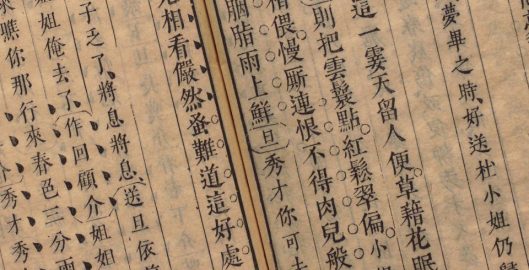 夢畢之時好送杜小姐仍
這一霎天留人便草藉花眠
則把雲鬟點紅鬆翠偏小
相偎慢廝連恨不得肉兒般
胭脂雨上鮮旦秀才你可去
相看儼然蚤難道這好處
子乏了將息將息送旦依
姐俺去了作回顧介姐姐
來瞧你那行來春色三分雨
介秀才秀